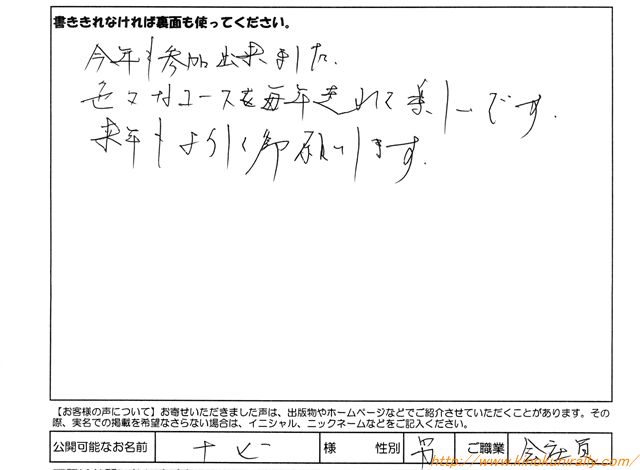 書ききれなければ裏面も使ってください。
今年も参加出来ました.
色々なコースを毎年走れて楽しいです.
来年もよろしく御願いします.
【お客様の声について】お寄せいただきました声は、出版物やホームページなどでご紹介させていただくことがあります。その
際、実名での掲載を希望なさらない場合は、イニシャル、ニックネームなどをご記入ください。
公開可能なお名前 様 性別 男 ご職業 会社員